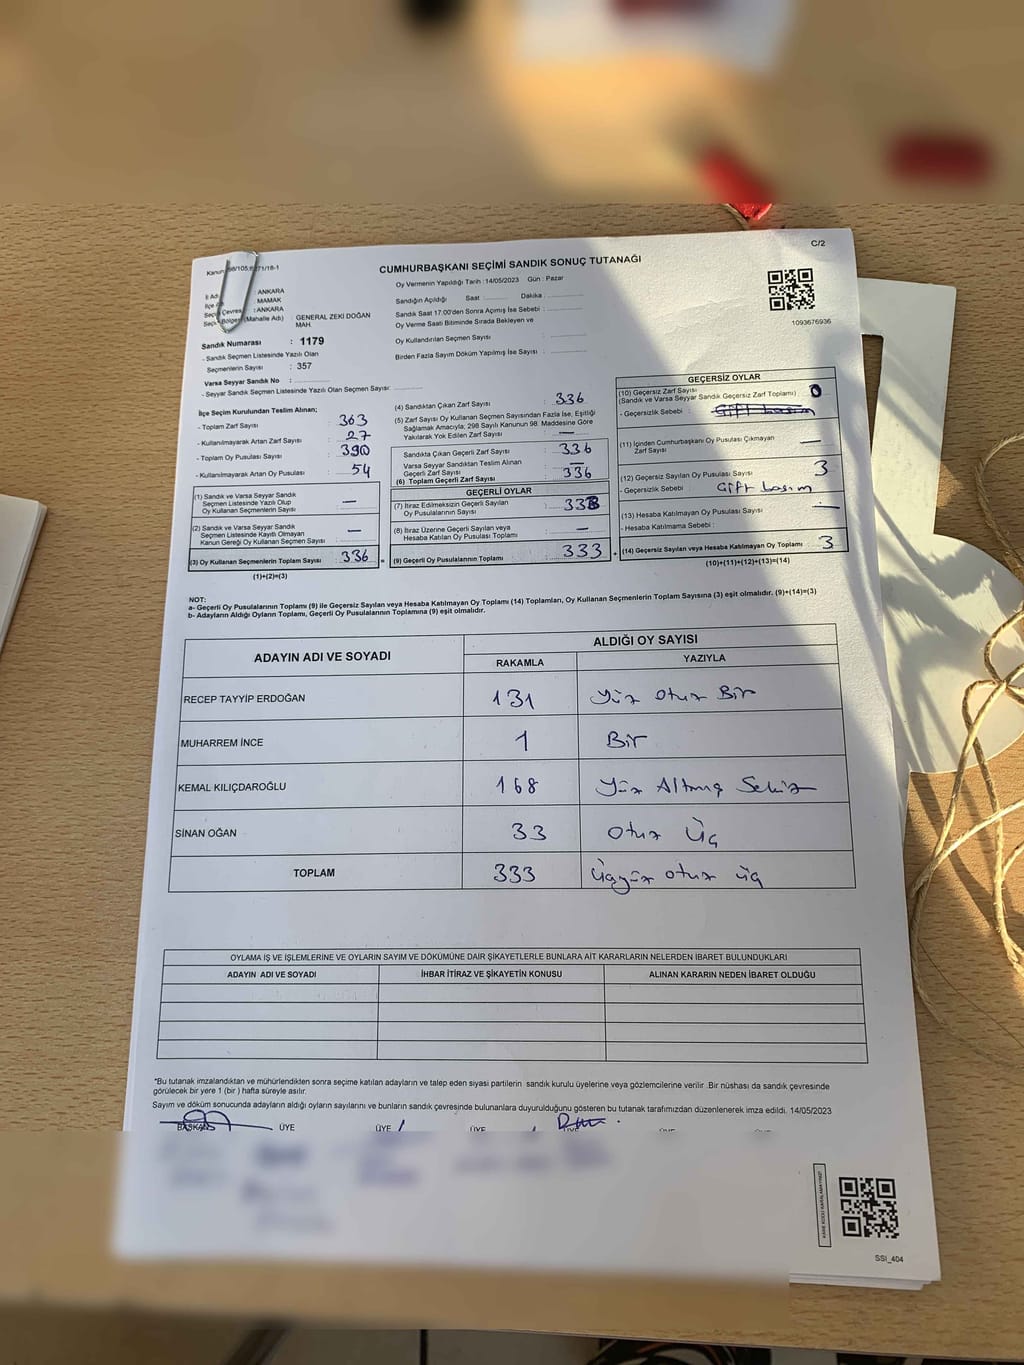 C/2
CUMHURBAŞKANI SEÇİMİ SANDIK SONUÇ TUTANAĞI
1093676936
: ANKARA
: MAMAK
: ANKARA
: GENERAL ZEKİ DOĞAN MAH.
Sandık Numarası : 1179
- Sandık Seçmen Listesinde Yazılı Olan
Seçmenlerin Sayısı : 357
Varsa Seyyar Sandık No :
- Seyyar Sandık Seçmen Listesinde Yazılı Olan Seçmen Sayısı:
Oy Vermenin Yapıldığı Tarih :14/05/2023 Gün : Pazar
Sandığın Açıldığı Saat Dakika
Sandık Saat 17.00'den Sonra Açılmış İse Sebebi :
Oy Verme Saati Bitiminde Sırada Bekleyen ve
Oy Kullandırılan Seçmen Sayısı :
Birden Fazla Sayım Döküm Yapılmış İse Sayısı :
İlçe Seçim Kurulundan Teslim Alınan;
- Toplam Zarf Sayısı : 363
- Kullanılmayarak Artan Zarf Sayısı : 27
- Toplam Oy Pusulası Sayısı : 390
- Kullanılmayarak Artan Oy Pusulası : 54
(1) Sandık ve Varsa Seyyar Sandık
Seçmen Listesinde Yazılı Olup
Oy Kullanan Seçmenlerin Sayısı : —
(2) Sandık ve Varsa Seyyar Sandık
Seçmen Listesinde Kayıtlı Olmayan
Kanun Gereği Oy Kullanan Seçmen Sayısı : —
(3) Oy Kullanan Seçmenlerin Toplam Sayısı : 336
(1)+(2)=(3)
(4) Sandıktan Çıkan Zarf Sayısı : 336
(5) Zarf Sayısı Oy Kullanan Seçmen Sayısından Fazla İse, Eşitliği
Sağlamak Amacıyla; 298 Sayılı Kanunun 98. Maddesine Göre
Yakılarak Yok Edilen Zarf Sayısı : —
Sandıkta Çıkan Geçerli Zarf Sayısı : 336
Varsa Seyyar Sandıktan Teslim Alınan
Geçerli Zarf Sayısı : —
(6) Toplam Geçerli Zarf Sayısı : 336
GEÇERLİ OYLAR
(7) İtiraz Edilmeksizin Geçerli Sayılan
Oy Pusulalarının Sayısı : 333
(8) İtiraz Üzerine Geçerli Sayılan veya
Hesaba Katılan Oy Pusulası Toplamı : —
(9) Geçerli Oy Pusulalarının Toplamı : 333
GEÇERSİZ OYLAR
(10) Geçersiz Zarf Sayısı
(Sandık ve Varsa Seyyar Sandık Geçersiz Zarf Toplamı) : 0
- Geçersizlik Sebebi : Çift basım
(11) İçinden Cumhurbaşkanı Oy Pusulası Çıkmayan
Zarf Sayısı : —
(12) Geçersiz Sayılan Oy Pusulası Sayısı : 3
- Geçersizlik Sebebi : Çift basım
(13) Hesaba Katılmayan Oy Pusulası Sayısı : —
- Hesaba Katılmama Sebebi :
(14) Geçersiz Sayılan veya Hesaba Katılmayan Oy Toplamı : 3
(10)+(11)+(12)+(13)=(14)
NOT:
a- Geçerli Oy Pusulalarının Toplamı (9) ile Geçersiz Sayılan veya Hesaba Katılmayan Oy Toplamı (14) Toplamları, Oy Kullanan Seçmenlerin Toplam Sayısına (3) eşit olmalıdır. (9)+(14)=(3)
b- Adayların Aldığı Oyların Toplamı, Geçerli Oy Pusulalarının Toplamına (9) eşit olmalıdır.
ADAYIN ADI VE SOYADI ALDIĞI OY SAYISI
RAKAMLA YAZIYLA
RECEP TAYYİP ERDOĞAN 131 Yüz otuz Bir
MUHARREM İNCE 1 Bir
KEMAL KILIÇDAROĞLU 168 Yüz Altmış Sekiz
SİNAN OĞAN 33 otuz Üç
TOPLAM 333 Üçyüz otuz üç
OYLAMA İŞ VE İŞLEMLERİNE VE OYLARIN SAYIM VE DÖKÜMÜNE DAİR ŞİKAYETLERLE BUNLARA AİT KARARLARIN NELERDEN İBARET BULUNDUKLARI
ADAYIN ADI VE SOYADI İHBAR İTİRAZ VE ŞİKAYETİN KONUSU ALINAN KARARIN NEDEN İBARET OLDUĞU
*Bu tutanak imzalandıktan ve mühürlendikten sonra seçime katılan adayların ve talep eden siyasi partilerin sandık kurulu üyelerine veya gözlemcilerine verilir .Bir nüshası da sandık çevresinde
görülecek bir yere 1 (bir ) hafta süreyle asılır.
Sayım ve döküm sonucunda adayların aldığı oyların sayılarını ve bunların sandık çevresinde bulunanlara duyurulduğunu gösteren bu tutanak tarafımızdan düzenlenerek imza edildi. 14/05/2023
BAŞKAN ÜYE ÜYE ÜYE ÜYE
SSİ_404